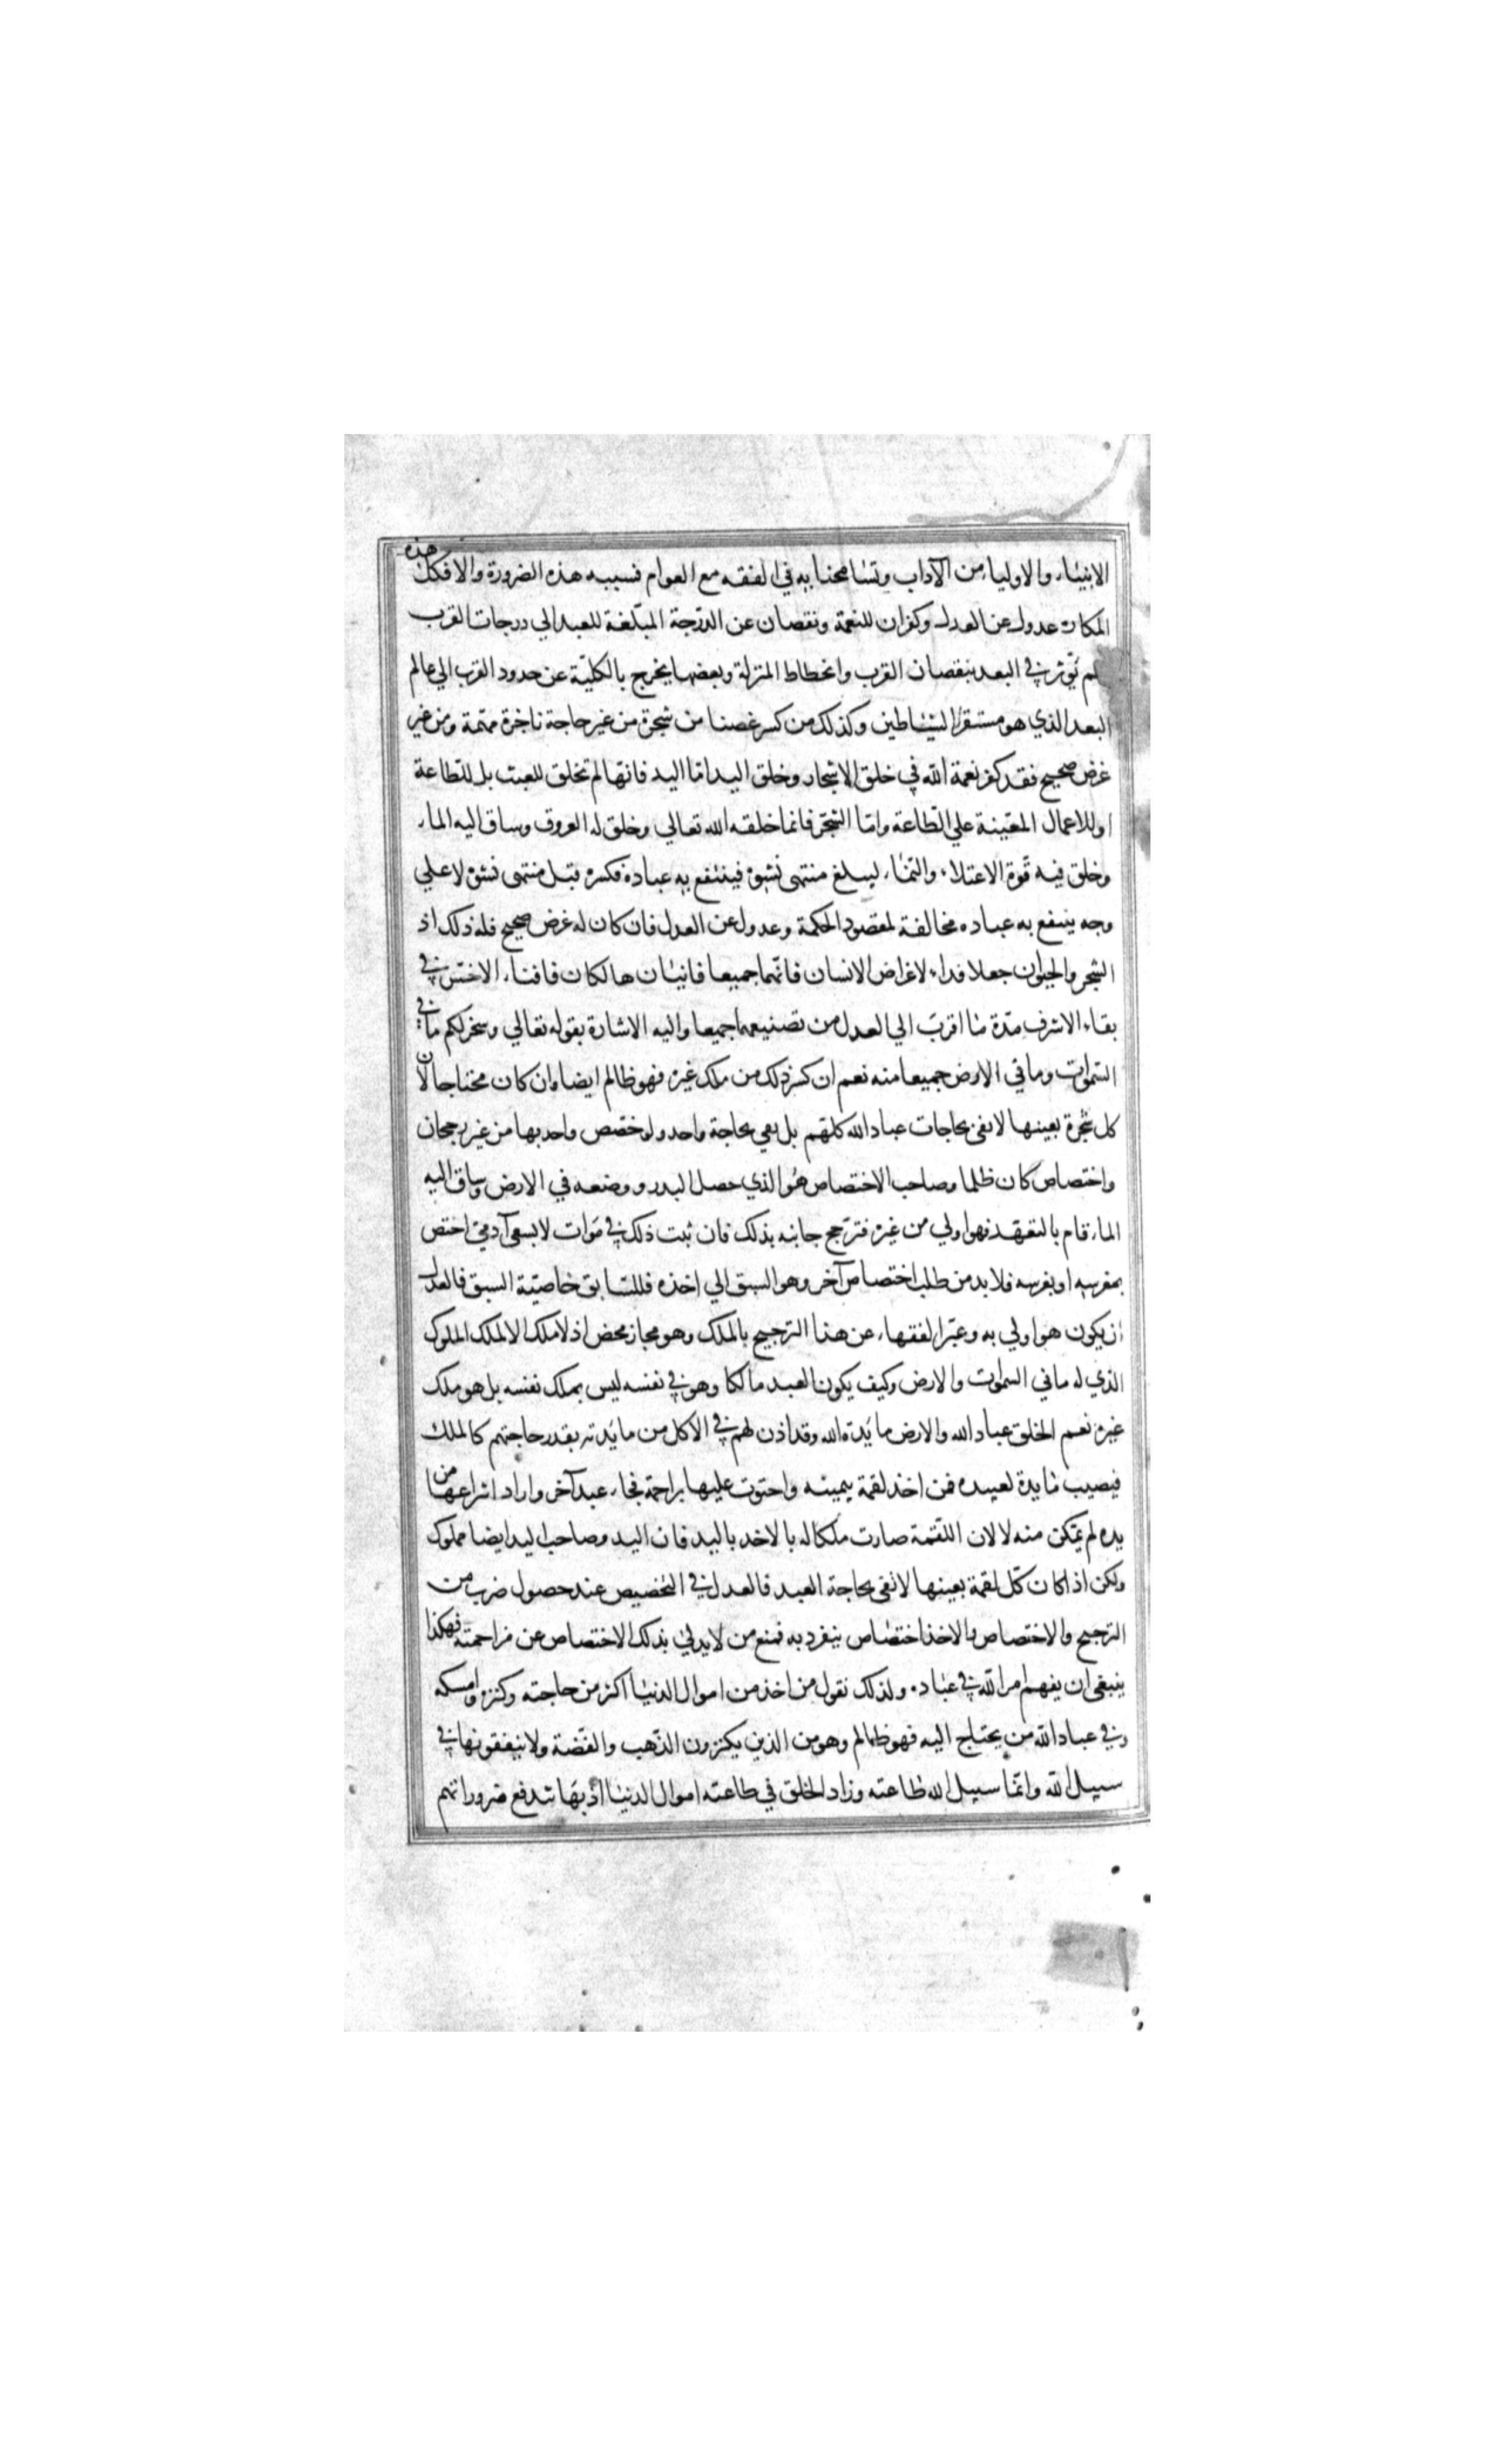 الانبياء والاوليا من الآداب وتسامحنا به في الفقه مع العوام فسببه هذه الضرورة والا فكل هذه
المكاره عدول عن العدل وكفران للنعمة ونقصان عن الدرجة المبلغة للعبد الي درجات القرب
يؤثر في البعد بنقصان القرب وانحطاط المنزلة وبعضها يخرج بالكلية عن حدود القرب الي عالم
البعد الذي هو مستقر الشياطين وكذلك من كسر غصنا من شجرة من غير حاجة ناجزة مهمة ومن غير
غرض صحيح فقد كفر نعمة الله في خلق الاشجار وخلق اليد اما اليد فانها لم تخلق للعبث بل للطاعة
او للاعمال المعينة علي الطاعة واما الشجر فانما خلقه الله تعالي وخلق له العروق وساق اليه الماء
وخلق فيه قوة الاعتلاء والنماء ليبلغ منتهى نشوه فينتفع به عباده فكسره قبل منتهى نشوه لا علي
وجه ينتفع به عباده مخالفة لمقصود الحكمة وعدول عن العدل فان كان له غرض صحيح فله ذلك اذ
الشجر والحيوان جعلا فداء لاغراض الانسان فانهما جميعا فانيان هالكان فافناء الاخس في
بقاء الاشرف مدة ما اقرب الي العدل من تضييعهما جميعا واليه الاشارة بقوله تعالي وسخر لكم ما في
السموات وما في الارض جميعا منه نعم ان كسر ذلك من ملك غيره فهو ظالم ايضا وان كان محتاجا لان
كل شجرة بعينها لا تفي بحاجات عباد الله كلهم بل تفي بحاجة واحد ولو خصص واحد بها من غير رجحان
واختصاص كان ظلما وصاحب الاختصاص هو الذي حصل البدر ووضعه في الارض وساق اليه
الماء قام بالتعهد فهو اولي من غيره فترجح جانبه بذلك فان نبت ذلك في موات لا بسعي آدمي اختص
بمغرسه او بغرسه فلا بد من طلب اختصاص آخر وهو السبق الي اخذه فللسابق خاصية السبق فالعدل
ان يكون هو اولي به وعبر الفقهاء عن هذا الترجيح بالملك وهو مجاز محض اذ لا ملك الا لملك الملوك
الذي له ما في السموات والارض وكيف يكون العبد مالكا وهو في نفسه ليس بملك نفسه بل هو ملك
غيره نعم الخلق عباد الله والارض مايدة الله وقد اذن لهم في الاكل من مايدته بقدر حاجتهم كالملك
فيصيب مايدة لعبيده فمن اخذ لقمة بيمينه واحتوت عليها براحمة فجاء عبد آخر واراد انتزاعها من
يده لم يمكن منه لا لان اللقمة صارت ملكا له بالاخد باليد فان اليد وصاحب اليد ايضا مملوك
ولكن اذا كان كل لقمة بعينها لا تفي بحاجة العبد فالعدل في التخصيص عند حصول ضرب من
الترجيح والاختصاص والاخذ اختصاص ينفرد به فمنع من لا يدلي بذلك الاختصاص عن مزاحمته فهكذا
ينبغي ان يفهم امر الله في عباده ولذلك نقول من اخذ من اموال الدنيا اكثر من حاجته وكنزه وامسكه
وفي عباد الله من يحتاج اليه فهو ظالم وهو من الذين يكنزون الذهب والفضة ولا ينفقونها في
سبيل الله وانما سبيل الله طاعته وزاد الخلق في طاعته اموال الدنيا اذ بها تندفع ضروراتهم